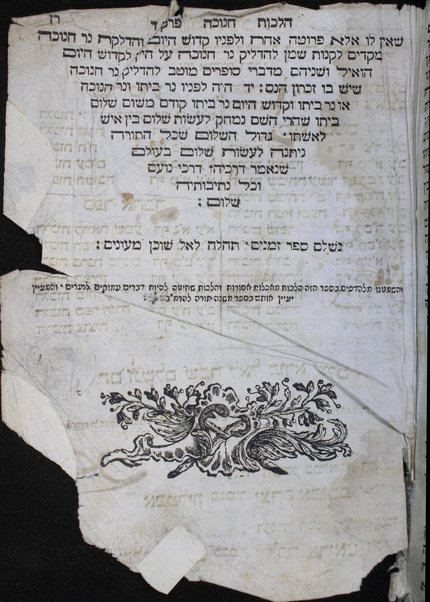 הלכות חנוכה פרק ד
שאין לו אלא פרוטה אחת ולפניו קדוש היום והדלקת נר חנוכה
מקדים לקנות שמן להדליק נר חנוכה על היין לקדוש היום
הואיל ושניהם מדברי סופרים מוטב להדליק נר חנוכה
שיש בו זכרון הנס: יד היה לפניו נר ביתו ונר חנוכה
או נר ביתו וקדוש היום נר ביתו קודם משום שלום
ביתו שהרי השם נמחק לעשות שלום בין איש
לאשתו: גדול השלום שכל התורה
ניתנה לעשות שלום בעולם
שנאמר דרכיה דרכי נועם
וכל נתיבותיה
שלום:
נשלם ספר זמנים: תהלה לאל שוכן מעונים:
והשמטנו מלהדפיס בספר הזה הלכות מאכלות אסורות והלכות שחיטה להיות דברים עמוקים לנערים והמעיין
יעיין אותם בספר משנה תורה להרמב"ם